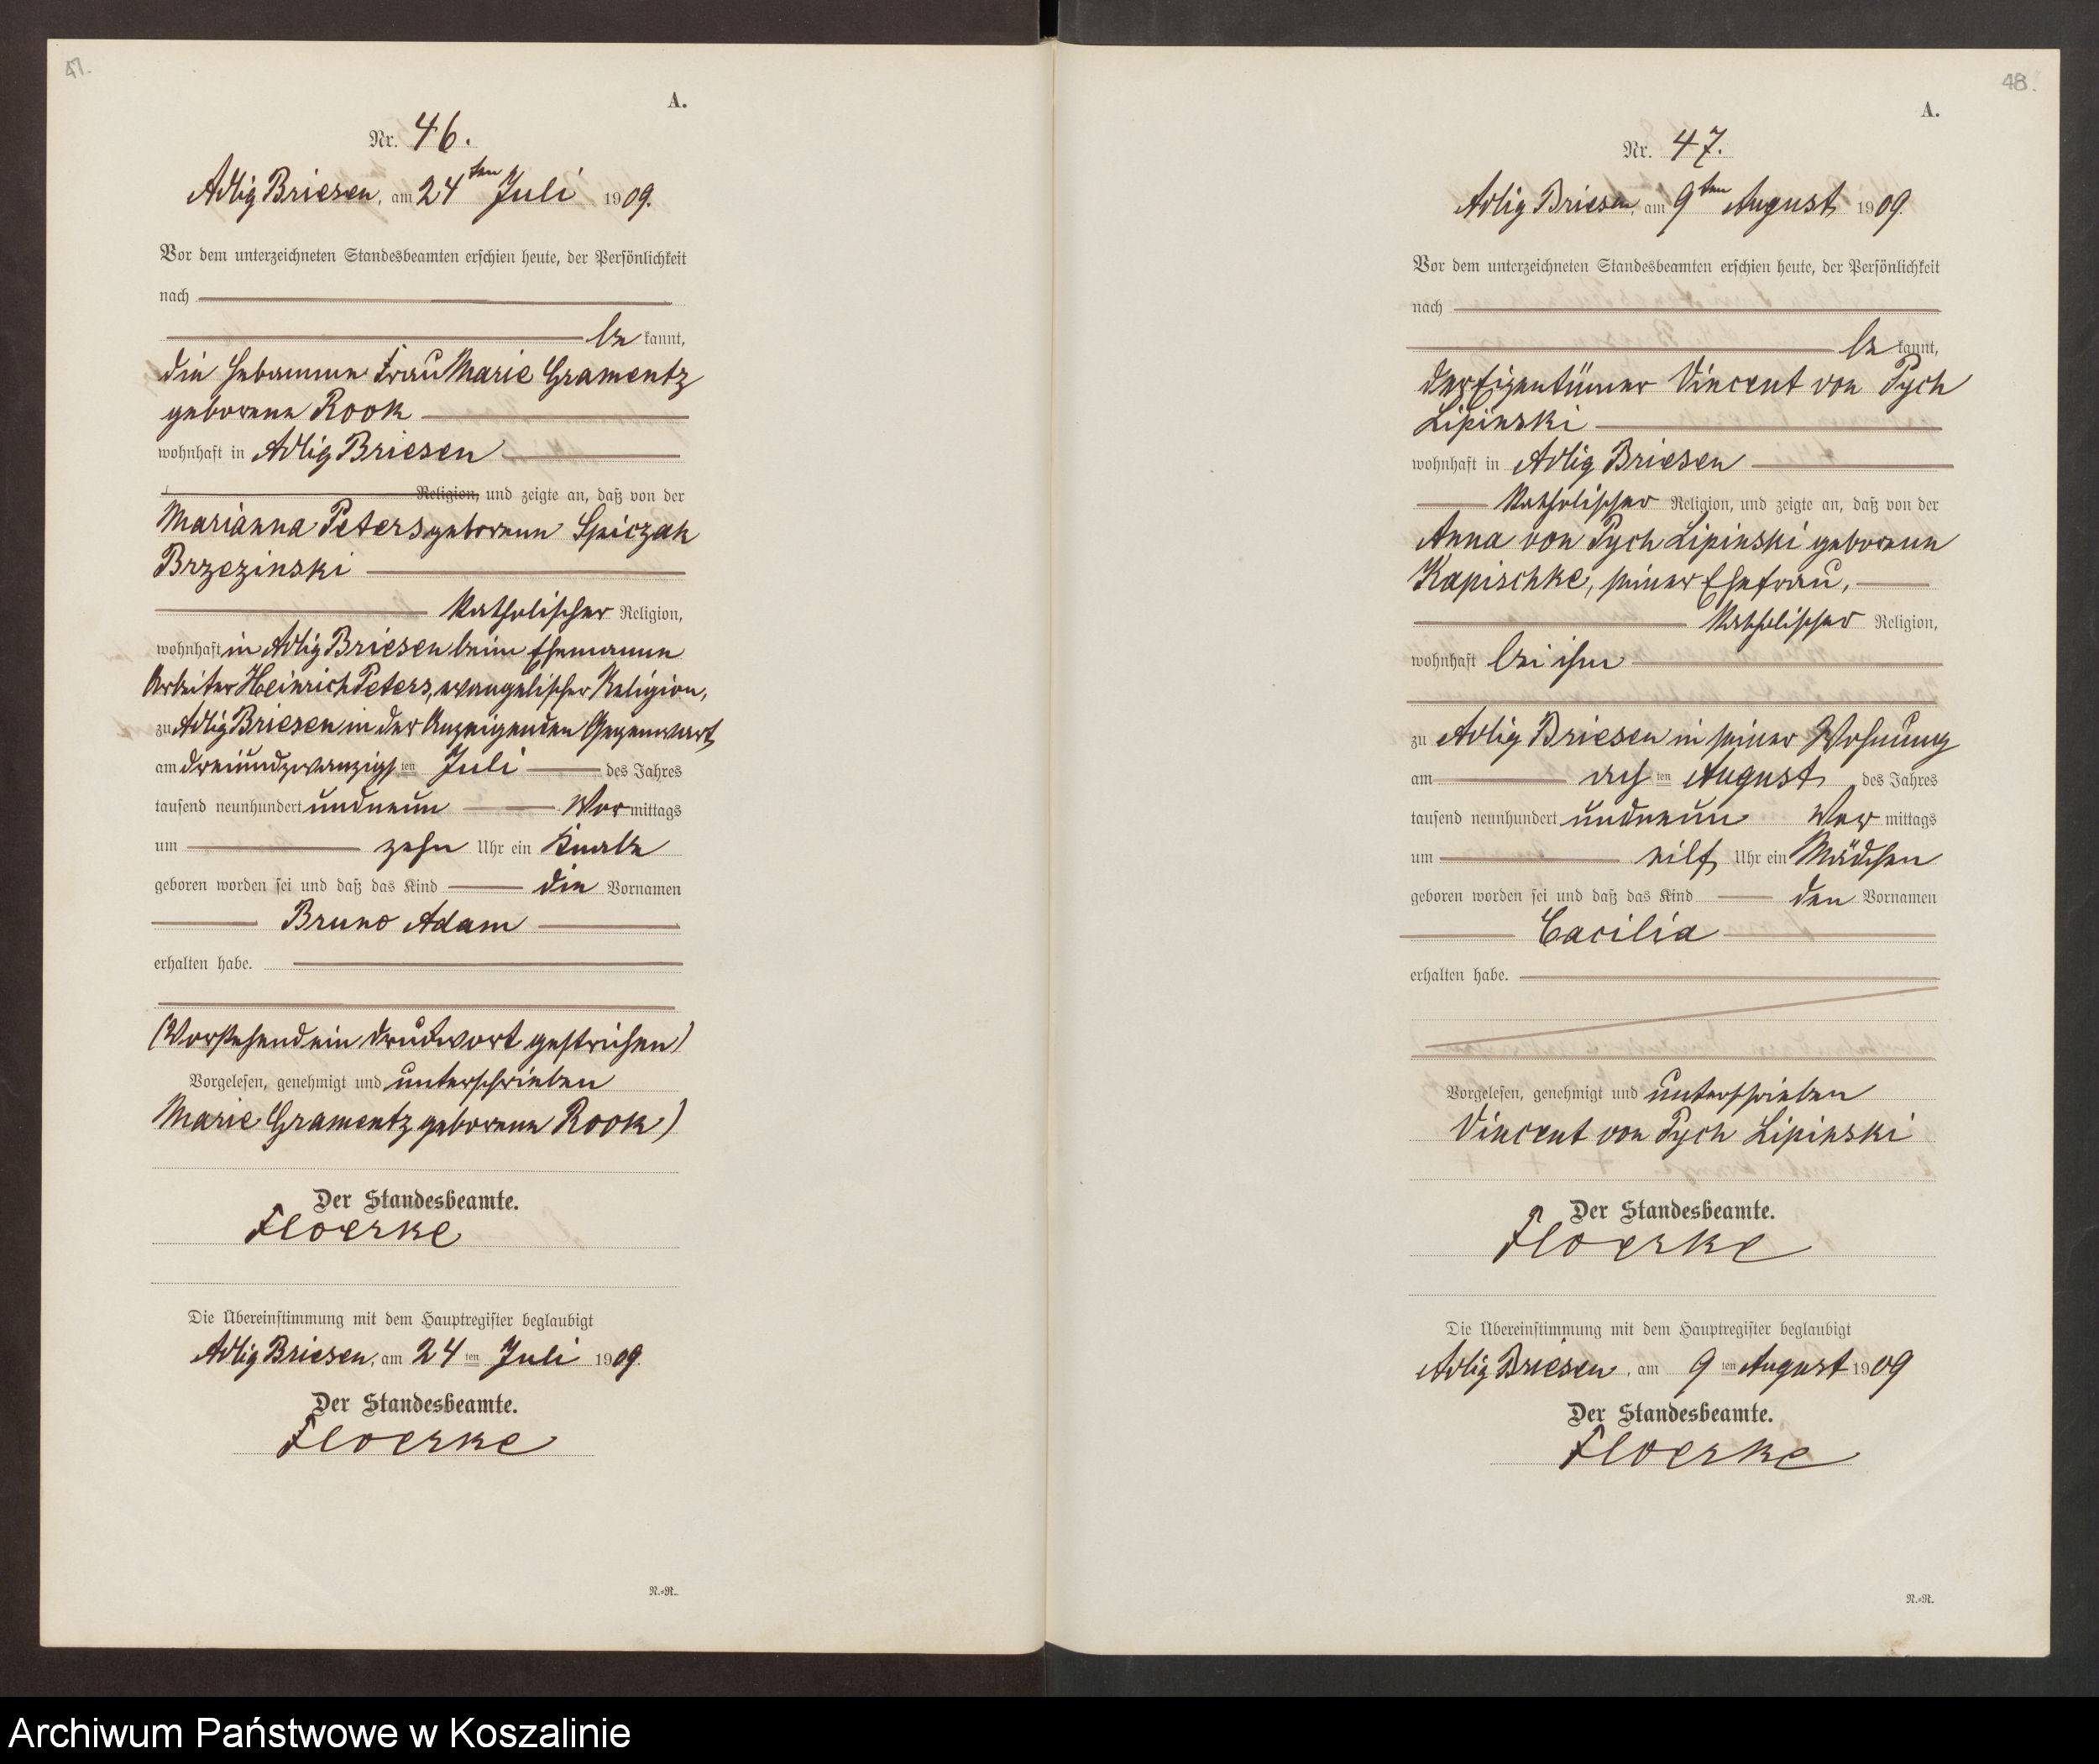 47.
A.
Nr. 46.
Adlig Briesen, am 24ten Juli 1909.
Vor dem unterzeichneten Standesbeamten erschien heute, der Persönlichkeit
nach
be kannt,
die Hebamme Frau Marie Gramentz
geborene Rook
wohnhaft in Adlig Briesen
Religion, und zeigte an, daß von der
Marianna Peters geborene Spiczak
Brzezinski
katholischer Religion,
wohnhaft in Adlig Briesen beim Ehemanne
Arbeiter Heinrich Peters, evangelischer Religion,
zu Adlig Briesen in der Anzeigenden Gegenwart
am dreiundzwanzigsten Juli des Jahres
tausend neunhundert undneun Vormittags
um zehn Uhr ein Knabe
geboren worden sei und daß das Kind die Vornamen
Bruno Adam
erhalten habe.
(Vorstehend ein Druckwort gestrichen)
Vorgelesen, genehmigt und unterschrieben
Marie Gramentz geborene Rook)
Der Standesbeamte.
Floerke
Die Übereinstimmung mit dem Hauptregister beglaubigt
Adlig Briesen, am 24ten Juli 1909.
Der Standesbeamte.
Floerke
N.=R.
48.
A.
Nr. 47.
Adlig Briesen, am 9ten August 1909
Vor dem unterzeichneten Standesbeamten erschien heute, der Persönlichkeit
nach
be kannt,
der Eigentümer Vincent von Pych
Lipinski
wohnhaft in Adlig Briesen
katholischer Religion, und zeigte an, daß von der
Anna von Pych Lipinski geborene
Kapischke, seiner Ehefrau,
katholischer Religion,
wohnhaft bei ihm
zu Adlig Briesen in seiner Wohnung
am achten August des Jahres
tausend neunhundert undneun Vormittags
um eilf Uhr ein Mädchen
geboren worden sei und daß das Kind den Vornamen
Cacilia
erhalten habe.
Vorgelesen, genehmigt und unterschrieben
Vincent von Pych Lipinski
Der Standesbeamte.
Floerke
Die Übereinstimmung mit dem Hauptregister beglaubigt
Adlig Briesen, am 9ten August 1909
Der Standesbeamte.
Floerke
N.=R.
Archiwum Państwowe w Koszalinie